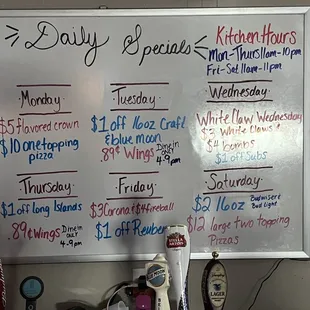 Daily Specials
Kitchen Hours
Mon-Thurs 11am-10pm
Fri-Sat 11am-11pm
Monday
$5 flavored crown
$10 one topping
pizza
Tuesday
$1 off 16oz Craft
& blue moon
.89¢ Wings Dine in
only
4-9pm
Wednesday
White Claw Wednesday
White Claws
$4 bombs
$1 off Subs
Thursday
$1 off long Islands
.89¢ Wings Dine in
only
4-9pm
Friday
$3 Corona $4 fireball
$1 off Reuben
Saturday
$2 16oz Budwiser
Bud light
$12 large two topping
Pizzas
STELLA ARTOIS
LAGER